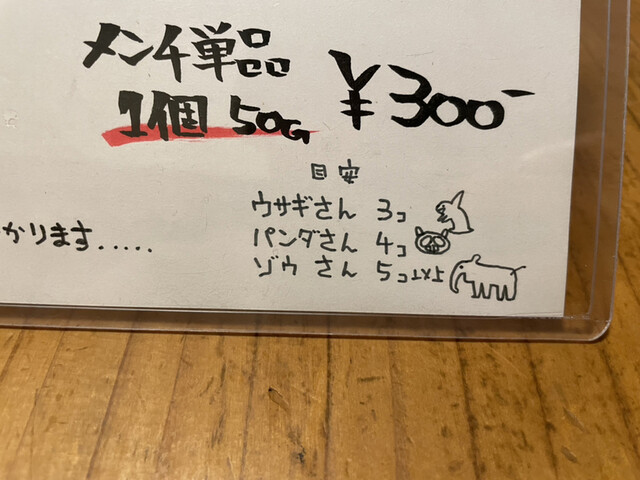 メンチ単品
1個 50G ¥300-
目安
ウサギさん 3コ
かります.....
パンダさん 4コ
ゾウさん 5コ以上